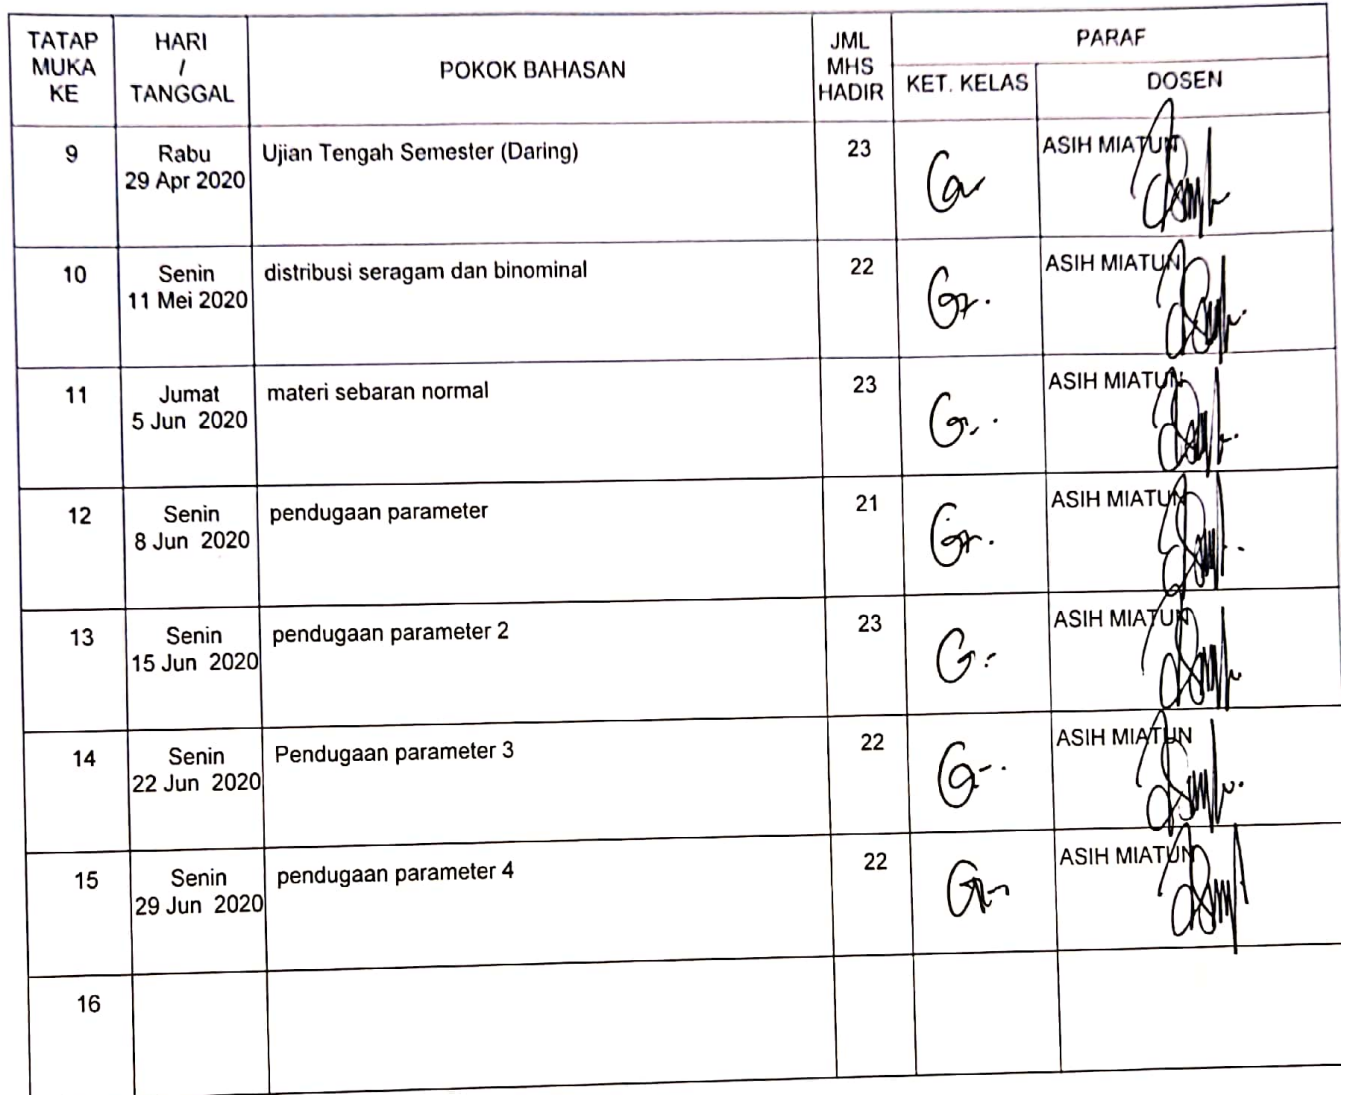 TATAP
MUKA
KE
HARI
/
TANGGAL
POKOK BAHASAN
JML
MHS
HADIR
PARAF
KET. KELAS
DOSEN
9
Rabu
29 Apr 2020
Ujian Tengah Semester (Daring)
23
ASIH MIATUN
10
Senin
11 Mei 2020
distribusi seragam dan binominal
22
ASIH MIATUN
11
Jumat
5 Jun 2020
materi sebaran normal
23
ASIH MIATUN
12
Senin
8 Jun 2020
pendugaan parameter
21
ASIH MIATUN
13
Senin
15 Jun 2020
pendugaan parameter 2
23
ASIH MIATUN
14
Senin
22 Jun 2020
Pendugaan parameter 3
22
ASIH MIATUN
15
Senin
29 Jun 2020
pendugaan parameter 4
22
ASIH MIATUN
16